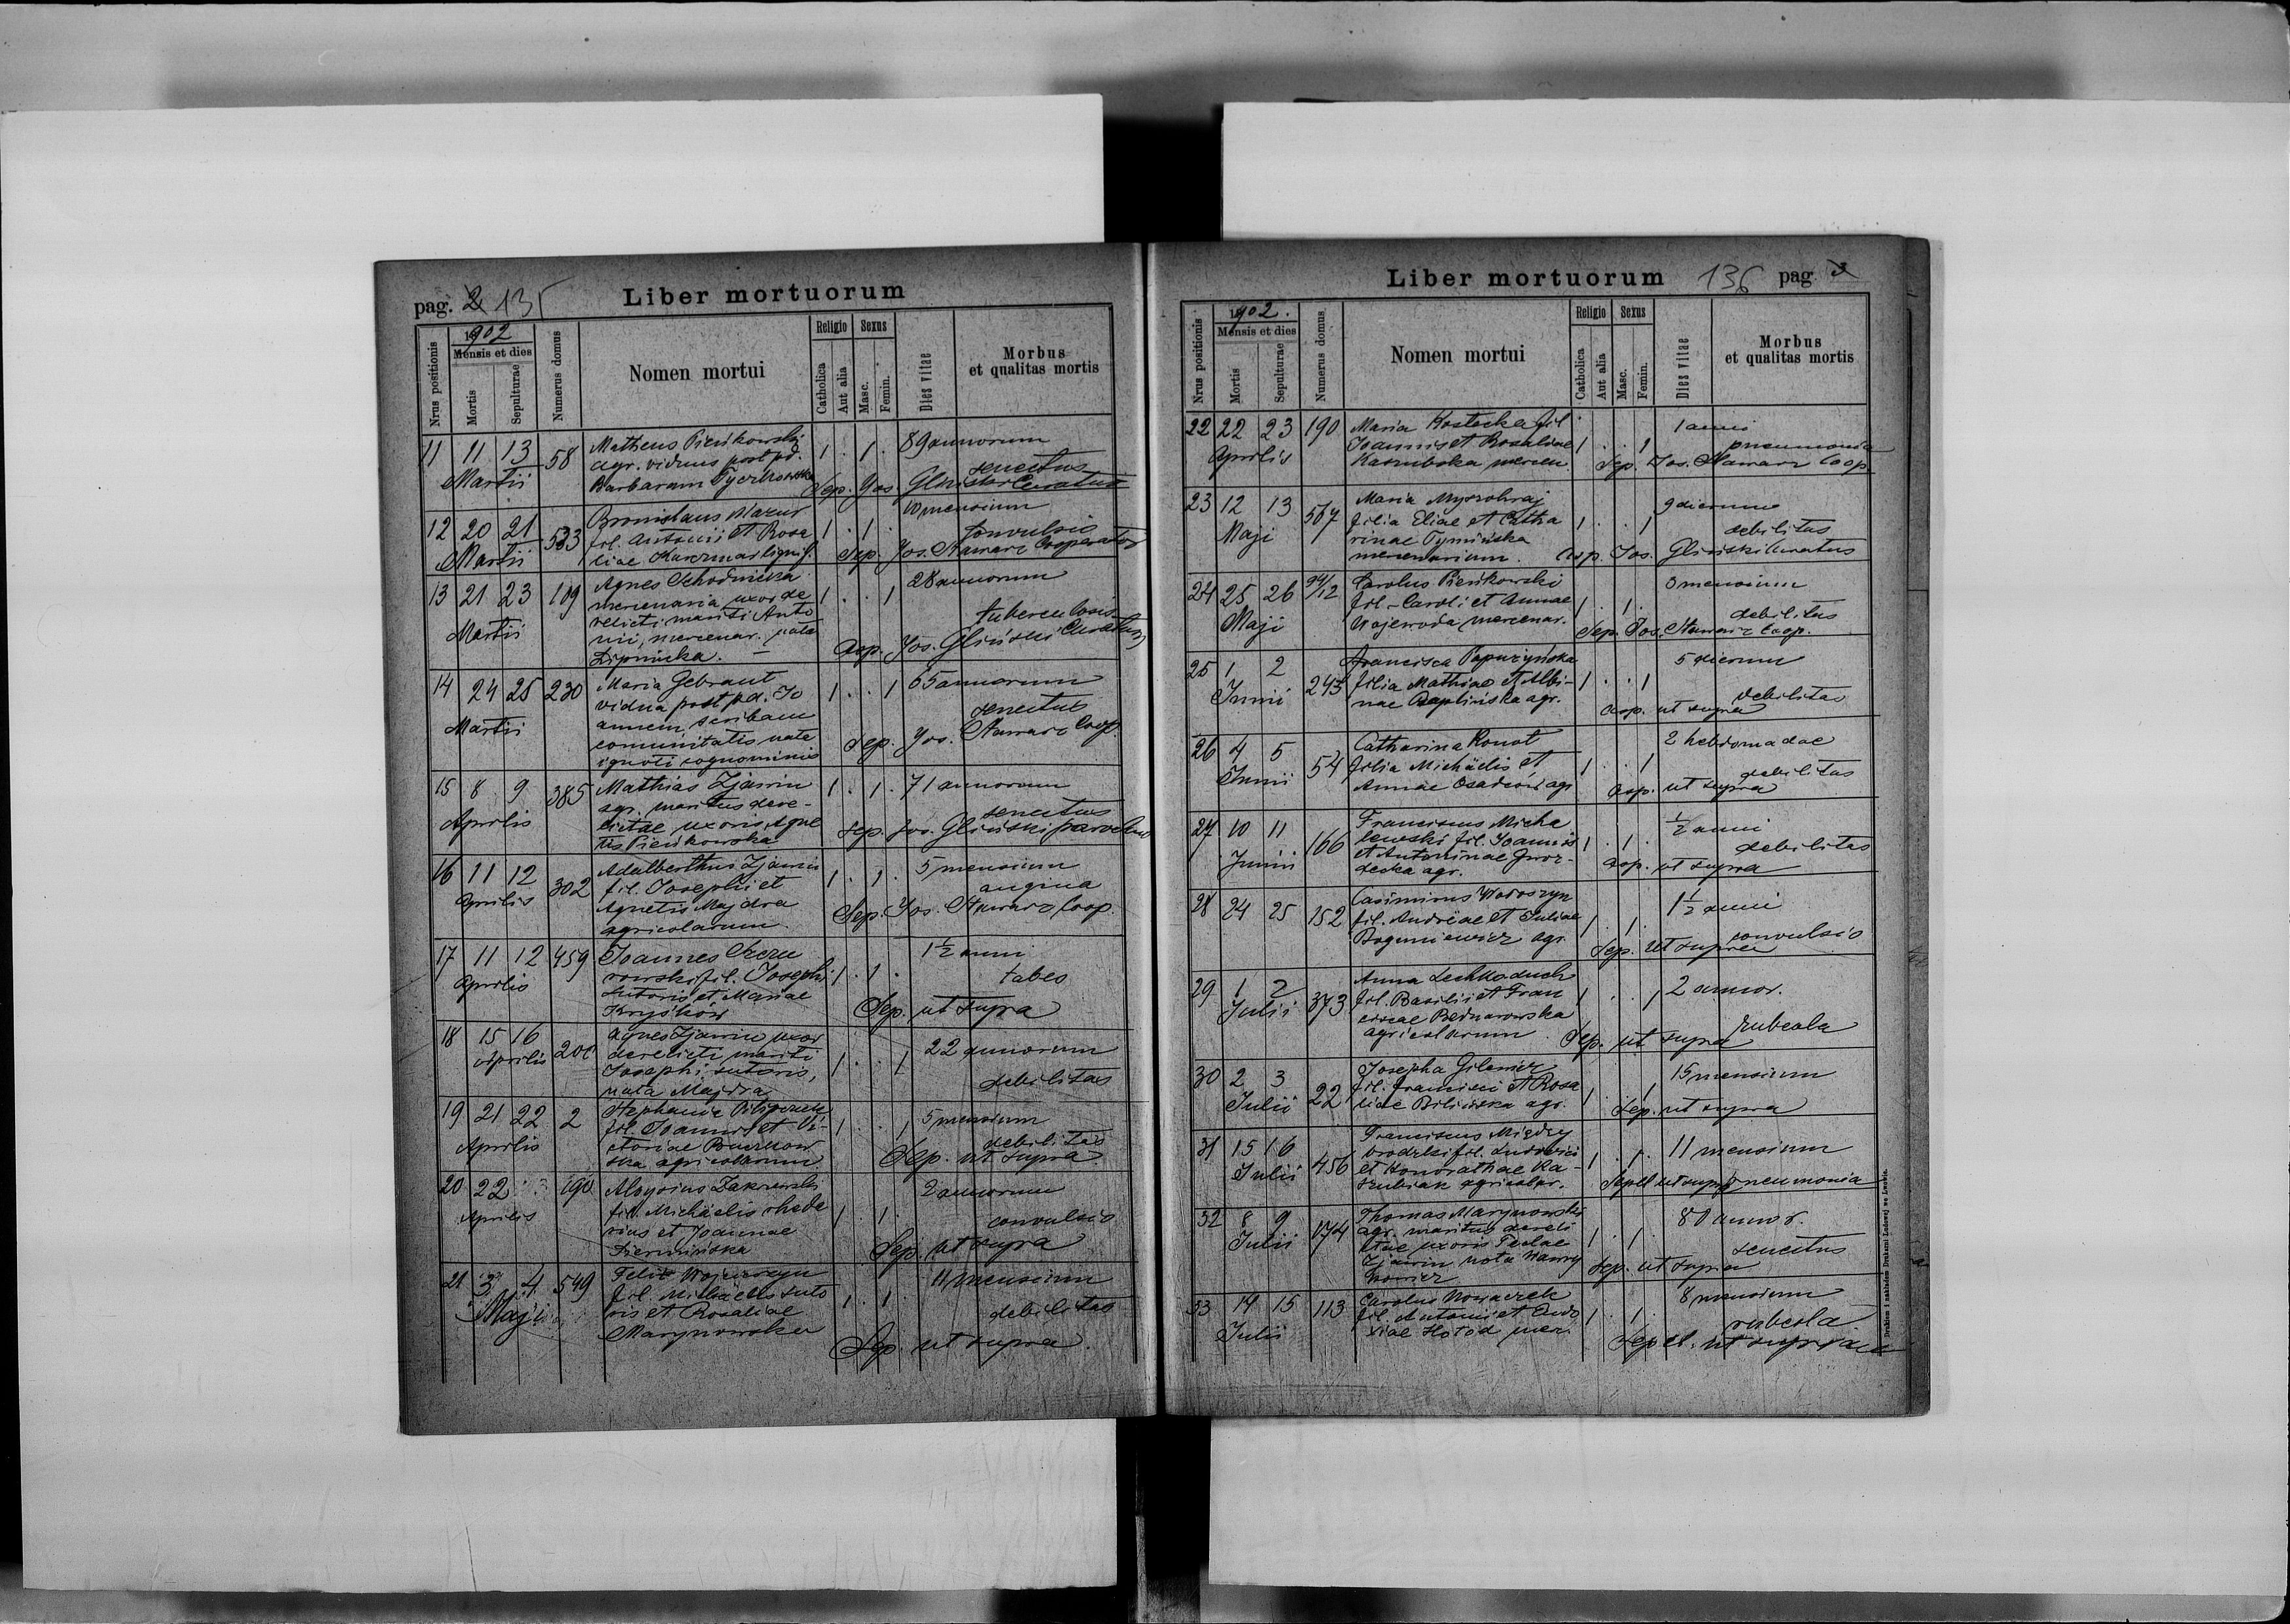 pag. 2 135
Liber mortuorum
Nrus positionis
1902
Mensis et dies
Mortis
Sepulturae
Numerus domus
Nomen mortui
Religio
Catholica
Aut alia
Sexus
Masc.
Femin.
Dies vitae
Morbus
et qualitas mortis
11 11 13 58 Matheus Pieńkowski 1 . 1 . 89 annorum
Martii agr. viduus post pd. senectus
Barbaram Sep. Jos. Gliński Curatus
12 20 21 533 Bronislaus Mazur 1 . 1 . 10 mensium
Martii fil. Antonii et Rosa convulsio
liae Karczmar lignif. Sep. Jos. Stawarz Cooperator
13 21 23 109 Agnes Schodnicka 1 . . 1 28 annorum
Martii mercenaria uxor de
relicti mariti Anto tuberculosis
nii, mercenar. nata
Lipnicka. — Asp. Jos. Gliński Curatus
14 24 25 230 Maria Gebraut 1 . . 1 65 annorum
Martii vidua post pd. Jo
annem, scribam senectus
comunitatis nata Sep. Jos. Stawarz Coop.
ignoti cognominis
15 8 9 385 Mathias Zjawin 1 . 1 . 71 annorum
Aprilis agr. maritus dere-
lictae uxoris Agne senectus
tis Pieńkowska Sep. Jos. Gliński parochus
16 11 12 302 Adalberthus Zjawin 1 . 1 . 5 mensium
Aprilis fil. Josephi et angina
Agnetis Majdra Sep. Jos. Stawarz Coop.
agricolarum
17 11 12 459 Joannes Czeru 1 . 1 . 1 1/2 anni
Aprilis rowski fil. Josephi tabes
sutoris et Mariae
Kryśków Sep. ut supra
18 15 16 Agnes Zjawin uxor 1 . . 1 22 annorum
Aprilis derelicti mariti
Josephi, sutoris, debilitas
nata Majdra
19 21 22 2 Stephania 1 . . 1 5 mensium
Aprilis fil. Joannis et Vi- debilitas
ctoriae Buczkow Sep. ut supra
ska agricolarum
20 22 190 Aloysius Zakrzewski 1 . 1 . 2 annorum
Aprilis fil. Michäelis rheda
rius et Joannae convulsio
Sierminska Sep. ut supra
21 3 4 549 Felix 1 . 1 . 11 mensium
Maji fil. Michäelis suto
ris et Rosaliae debilitas
Marynowska Sep. ut supra.
Liber mortuorum 136 pag. 3
Nrus positionis
1902.
Mensis et dies
Mortis
Sepulturae
Numerus domus
Nomen mortui
Religio
Catholica
Aut alia
Sexus
Masc.
Femin.
Dies vitae
Morbus
et qualitas mortis
22 22 23 190 Maria Kostecka fil 1 . . 1 1 anni
Aprilis Joannis et Rosaliae pneumonia
mercen. Sep. Jos. Stawarz Coop.
23 12 13 567 Maria 1 . . 1 9 dierum
Maji filia Eliae et Catha debilitas
rinae Tymińska
mercenarium. Asp. Jos. Gliński Curatus
24 25 26 Carolus Pieńkowski 1 . 1 . 3 mensium
Maji fil. Caroli et Annae debilitas
Wojewoda mercenar. Sep. Jos. Stawarz Coop.
25 1 2 243 Francisca Papurzyńska 1 . . 1 5 dierum
Junii filia Mathiae et Albi- debilitas
nae Czaplińska agr. Asp. ut supra
26 4 5 54 Catharina Konot 1 . . 1 2 hebdomadae
Junii filia Michäelis et debilitas
Annae Osadców agr. Asp. ut supra
27 10 11 166 Franciscus Micha 1 . 1 . 1/2 anni
Junii lewski fil. Joannis debilitas
et Antoninae Gwoz-
decka agr. Asp. ut supra
28 24 25 152 Casimirus Woroszyn 1 . 1 . 1 1/2 anni
fil. Andreae et Juliae convulsio
Boguniewicz agr. Sep. ut supra
29 1 2 373 Anna Lechkoduch 1 . . 1 2 annor.
Julii fil. Basilii et Fran
ciscae Bednarowska rubeola
agricolarum Sep. ut supra
30 2 3 22 Josepha Gilewicz 1 . . 1 15 mensium
Julii fil. Francisci et Rosa
liae Bilińska agr. Sep. ut supra
31 15 16 456 Franciscus Między 1 . 1 . 11 mensium
Julii brodzki fil. Ludovici
et Honorathae Ka-
szubiak agricolar. Sepel. ut supra pneumonia
32 8 9 174 Thomas Marynowski 1 . 1 . 80 annor.
Julii agr. maritus dereli
ctae uxoris Teclae senectus
Zjawin nata Wawry Sep. ut supra
kowicz
33 14 15 113 Carolus Nowaczek 1 . 1 . 8 mensium
Julii fil. Antonii et Eudo rubeola
xiae Hołod mer. Sepel. ut supra
Drukiem i nakładem Drukarni Ludowej we Lwowie.